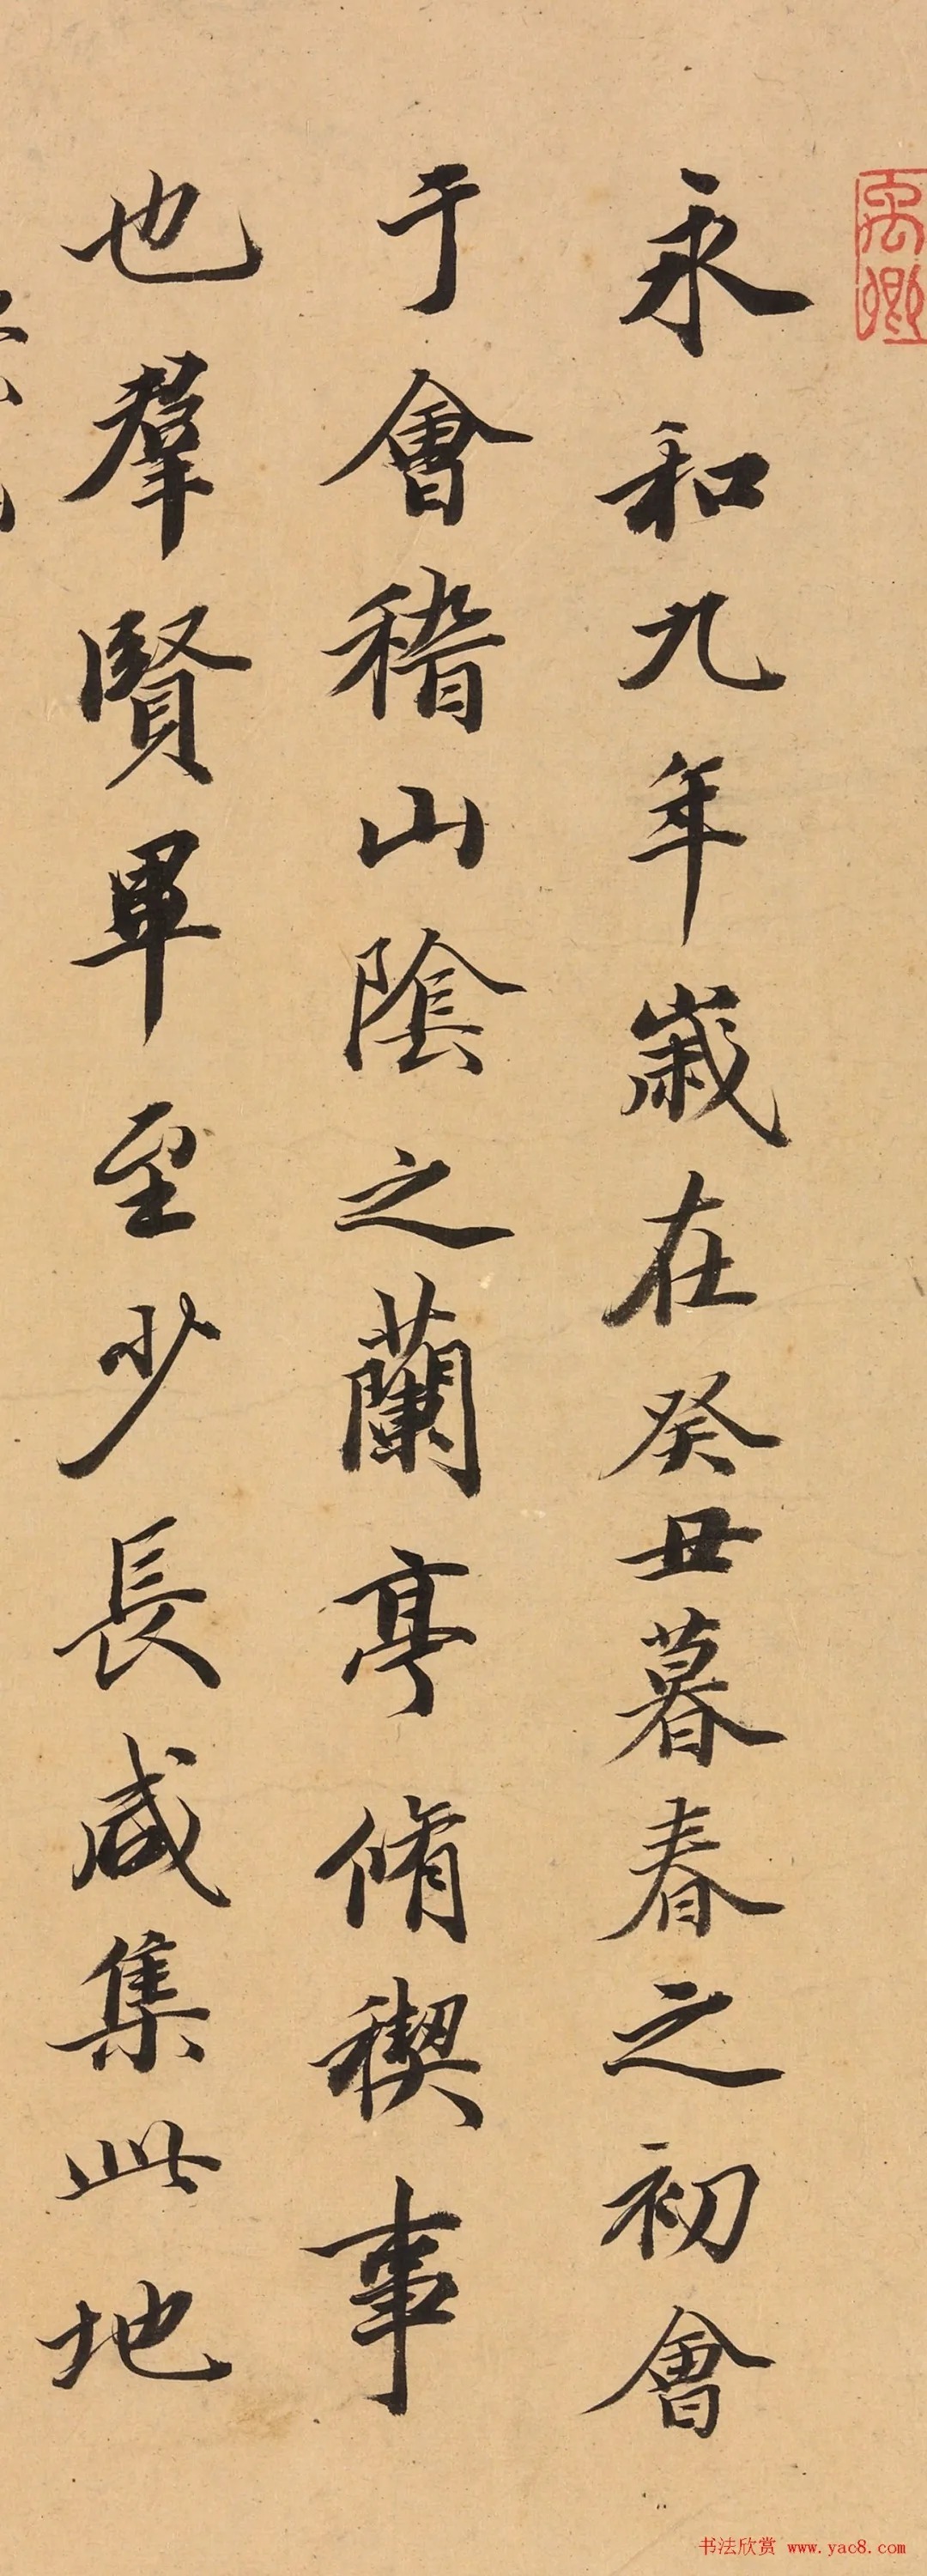 禹卿
永和九年歲在癸丑暮春之初會
于會稽山陰之蘭亭脩稧事
也羣賢畢至少長咸集此地
书法欣赏 www.yac8.com